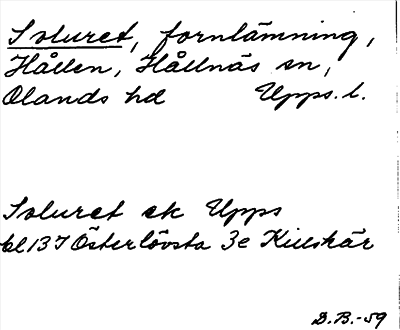 Soluret, fornlämning,
Hållen, Hållnäs sn,
Olands hd Upps. l.
Soluret ek Upps
bl 137 Österlövsta 3e Kullskär
D.B.-59